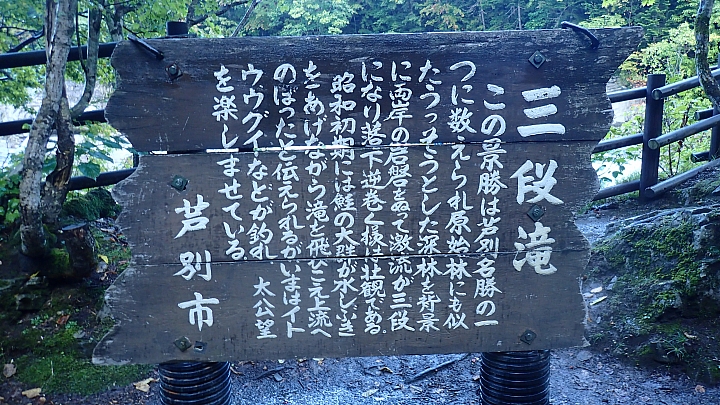 三段滝
この景勝は芦別名勝の一
つに数えられ原始林にも似
たうっそうとした深林を背景
に両岸の岩盤をぬって激流が三段
になり落下逆巻く様は壮観である
昭和初期には鮭の大群が水しぶき
をあげながら滝を飛びこえ上流へ
のぼったと伝えられるがいまはイト
ウウグイなどが釣れ 太公望
を楽しませている。
芦別市